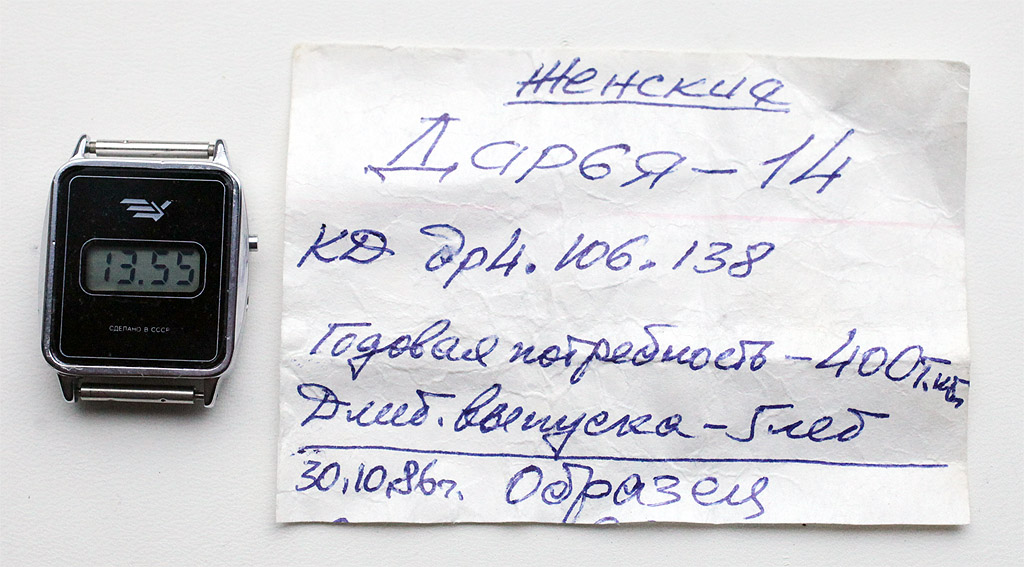 13.55
СДЕЛАНО В СССР
Женския
Дарья-14
КД др4.106.138
Годовая потребность - 400 т.шт.
Длит. выпуска - 5 лет
30.10.86г. Образец